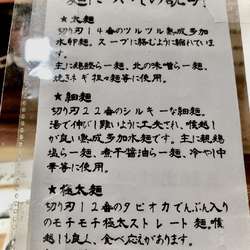 麺についての説明!
★太麺
切り刃14番のツルツル熟成多加
水卵麺。スープに絡むように縮れていま
す。
主に鶏鰹らー麺、北の味噌らー麺、
焼きネギ担々麺等に使用。
★細麺
切り刃22番のシルキーな細麺。
湯で伸びし難いように工夫され、喉越し
が良い熟成多加水麺です。主に親鶏
塩らー麺、煮干醤油らー麺、冷やし中
華等に使用。
★極太麺
切り刃12番のタピオカでんぷん入り
のモチモチ極太ストレート麺。喉
越しも良く、食べ応えがあります。